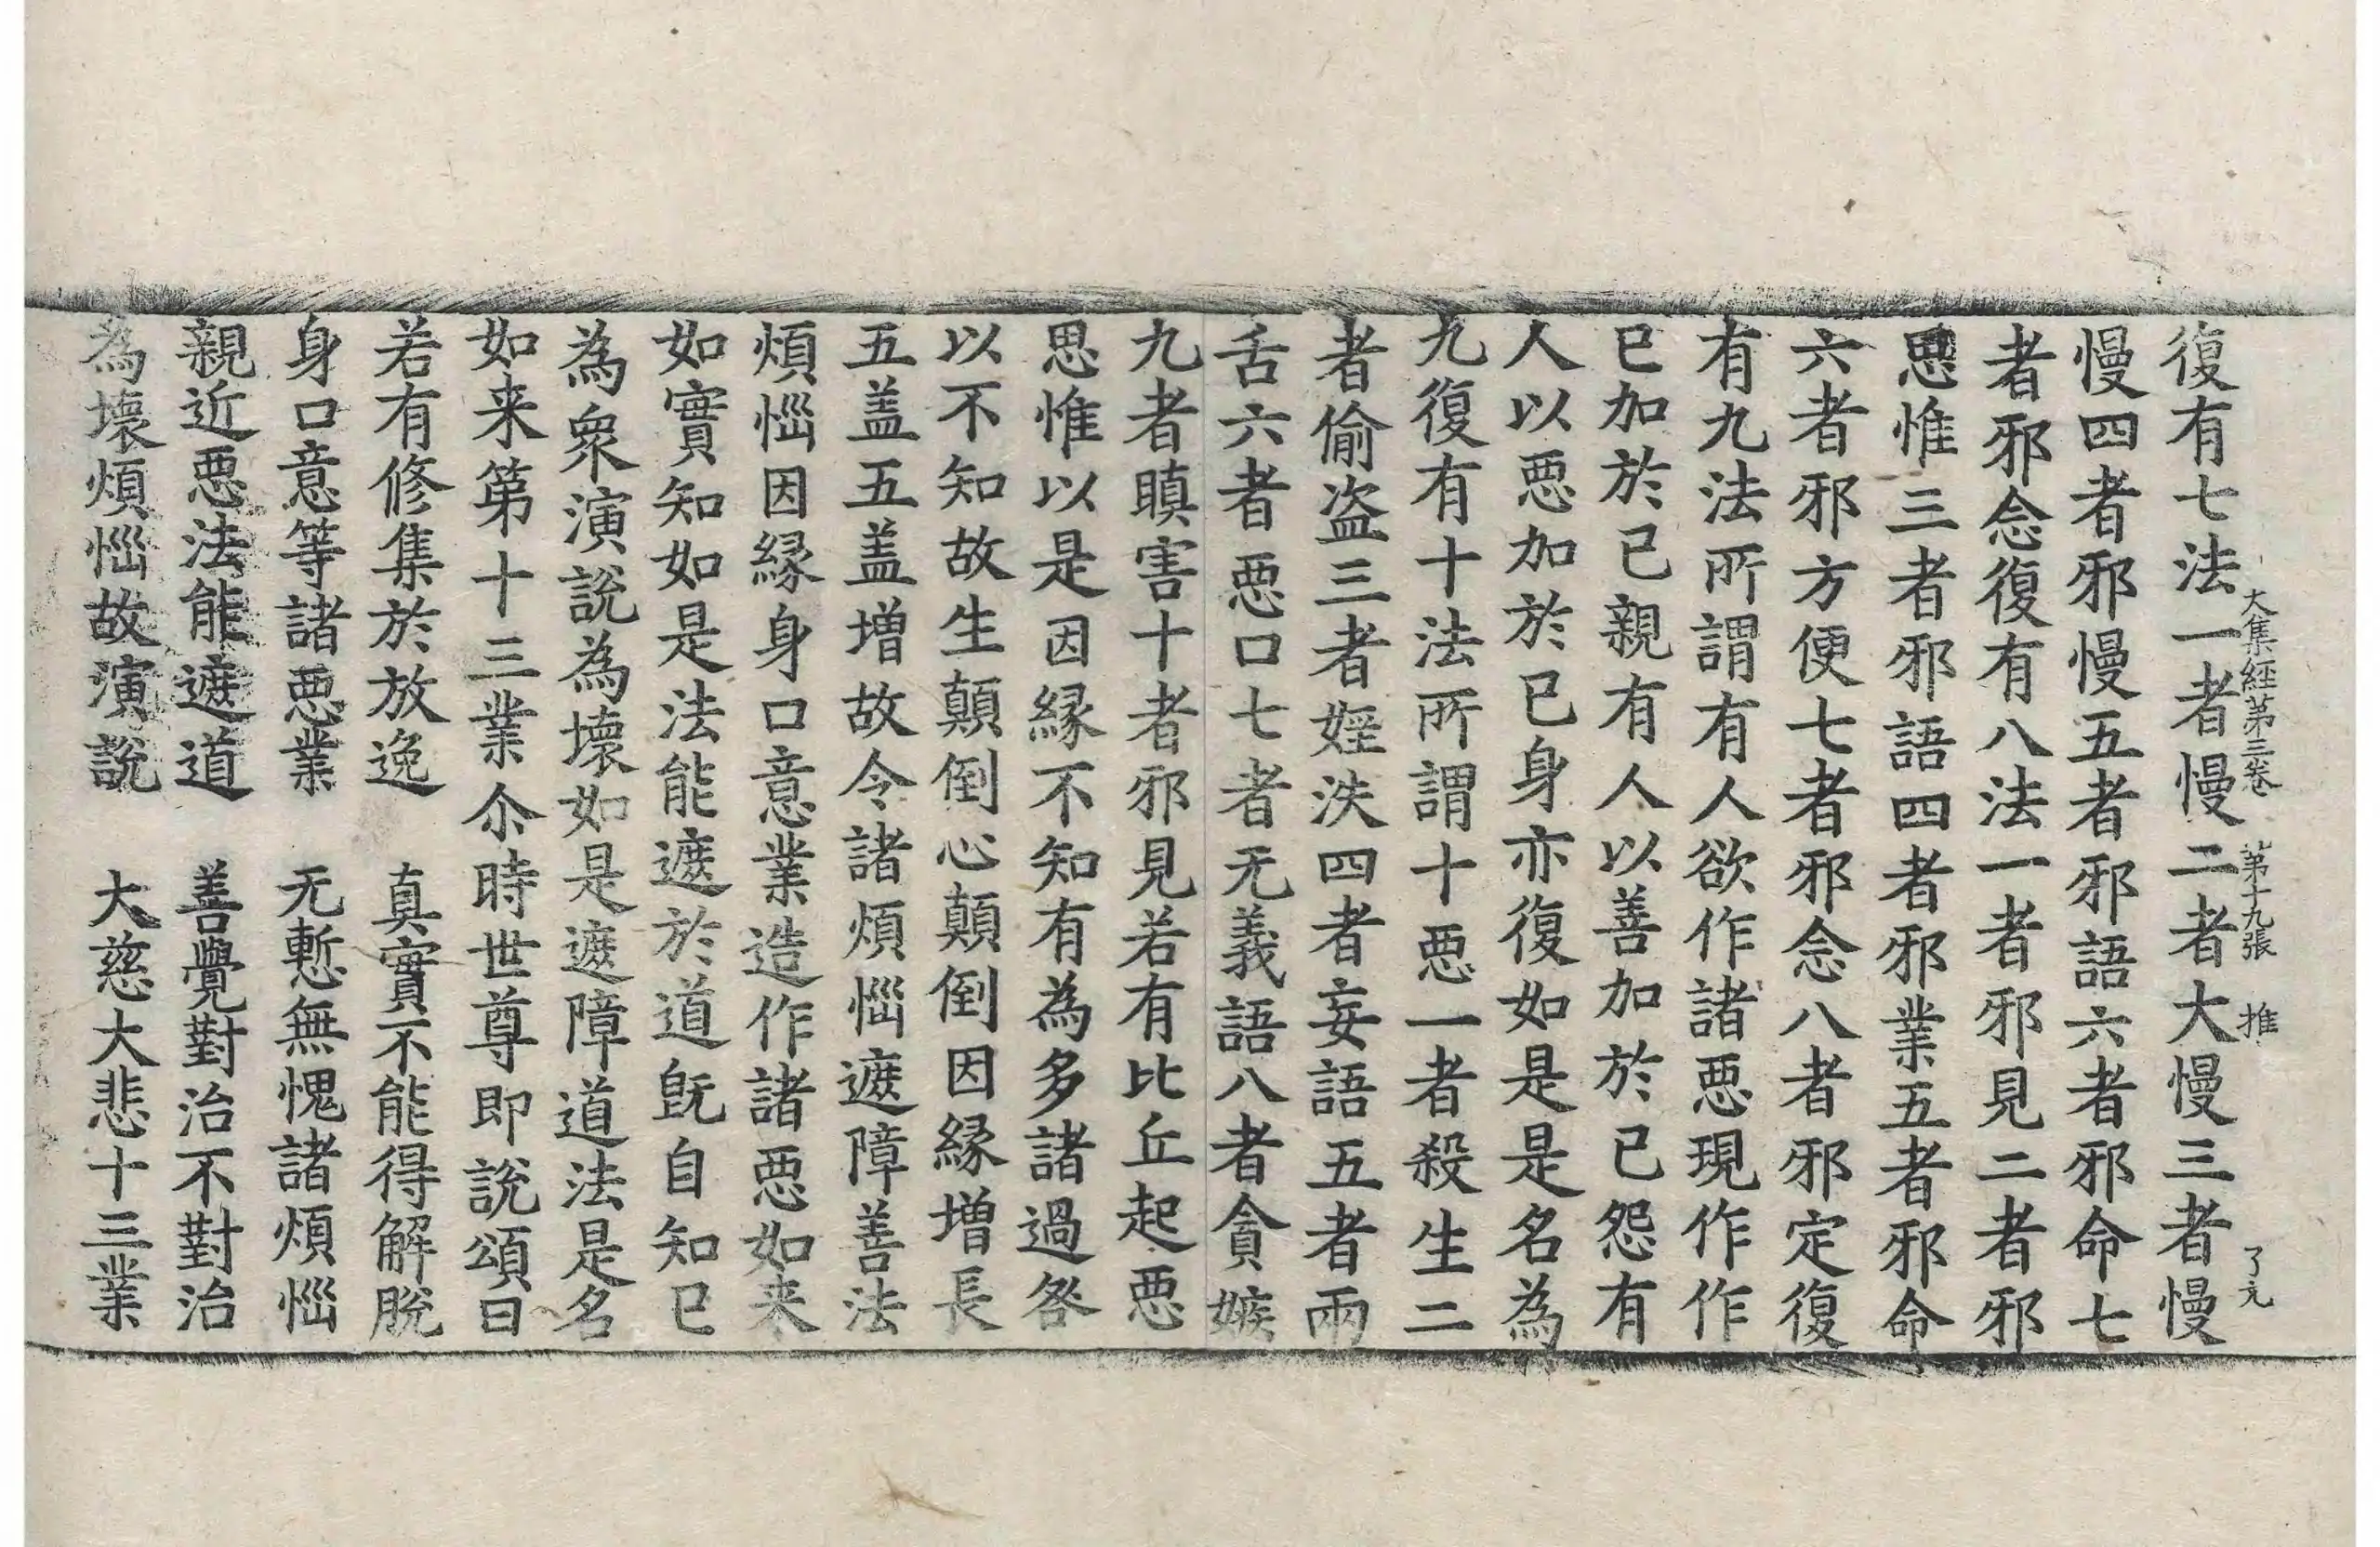 大集經第三卷 第十九張 推 了元
復有七法一者慢二者大慢三者慢
慢四者邪慢五者邪語六者邪命七
者邪念復有八法一者邪見二者邪
思惟三者邪語四者邪業五者邪命
六者邪方便七者邪念八者邪定復
有九法所謂有人欲作諸惡現作作
已加於已親有人以善加於已怨有
人以惡加於已身亦復如是是名為
九復有十法所謂十惡一者殺生二
者偷盗三者婬泆四者妄語五者兩
舌六者惡口七者无義語八者貪嫉
九者瞋害十者邪見若有比丘起惡
思惟以是因緣不知有為多諸過咎
以不知故生顛倒心顛倒因緣增長
五盖五盖增故令諸煩惱遮障善法
煩惱因緣身口意業造作諸惡如来
如實知如是法能遮於道既自知已
為衆演說為壞如是遮障道法是名
如来第十三業尒時世尊即說頌曰
若有修集於放逸 真實不能得解脫
身口意等諸惡業 无慙無愧諸煩惱
親近惡法能遮道 善覺對治不對治
為壞煩惱故演說 大慈大悲十三業